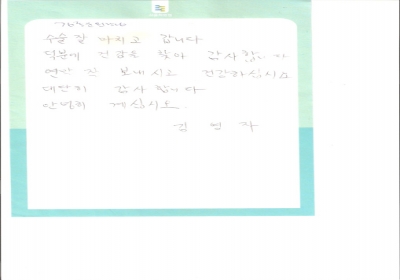 수술 잘 마치고 갑니다
덕분에 건강을 찾아 감사합니다
연말 잘 보내시고 건강하십시요
대단히 감사합니다
안녕히 계십시오
김 영 자